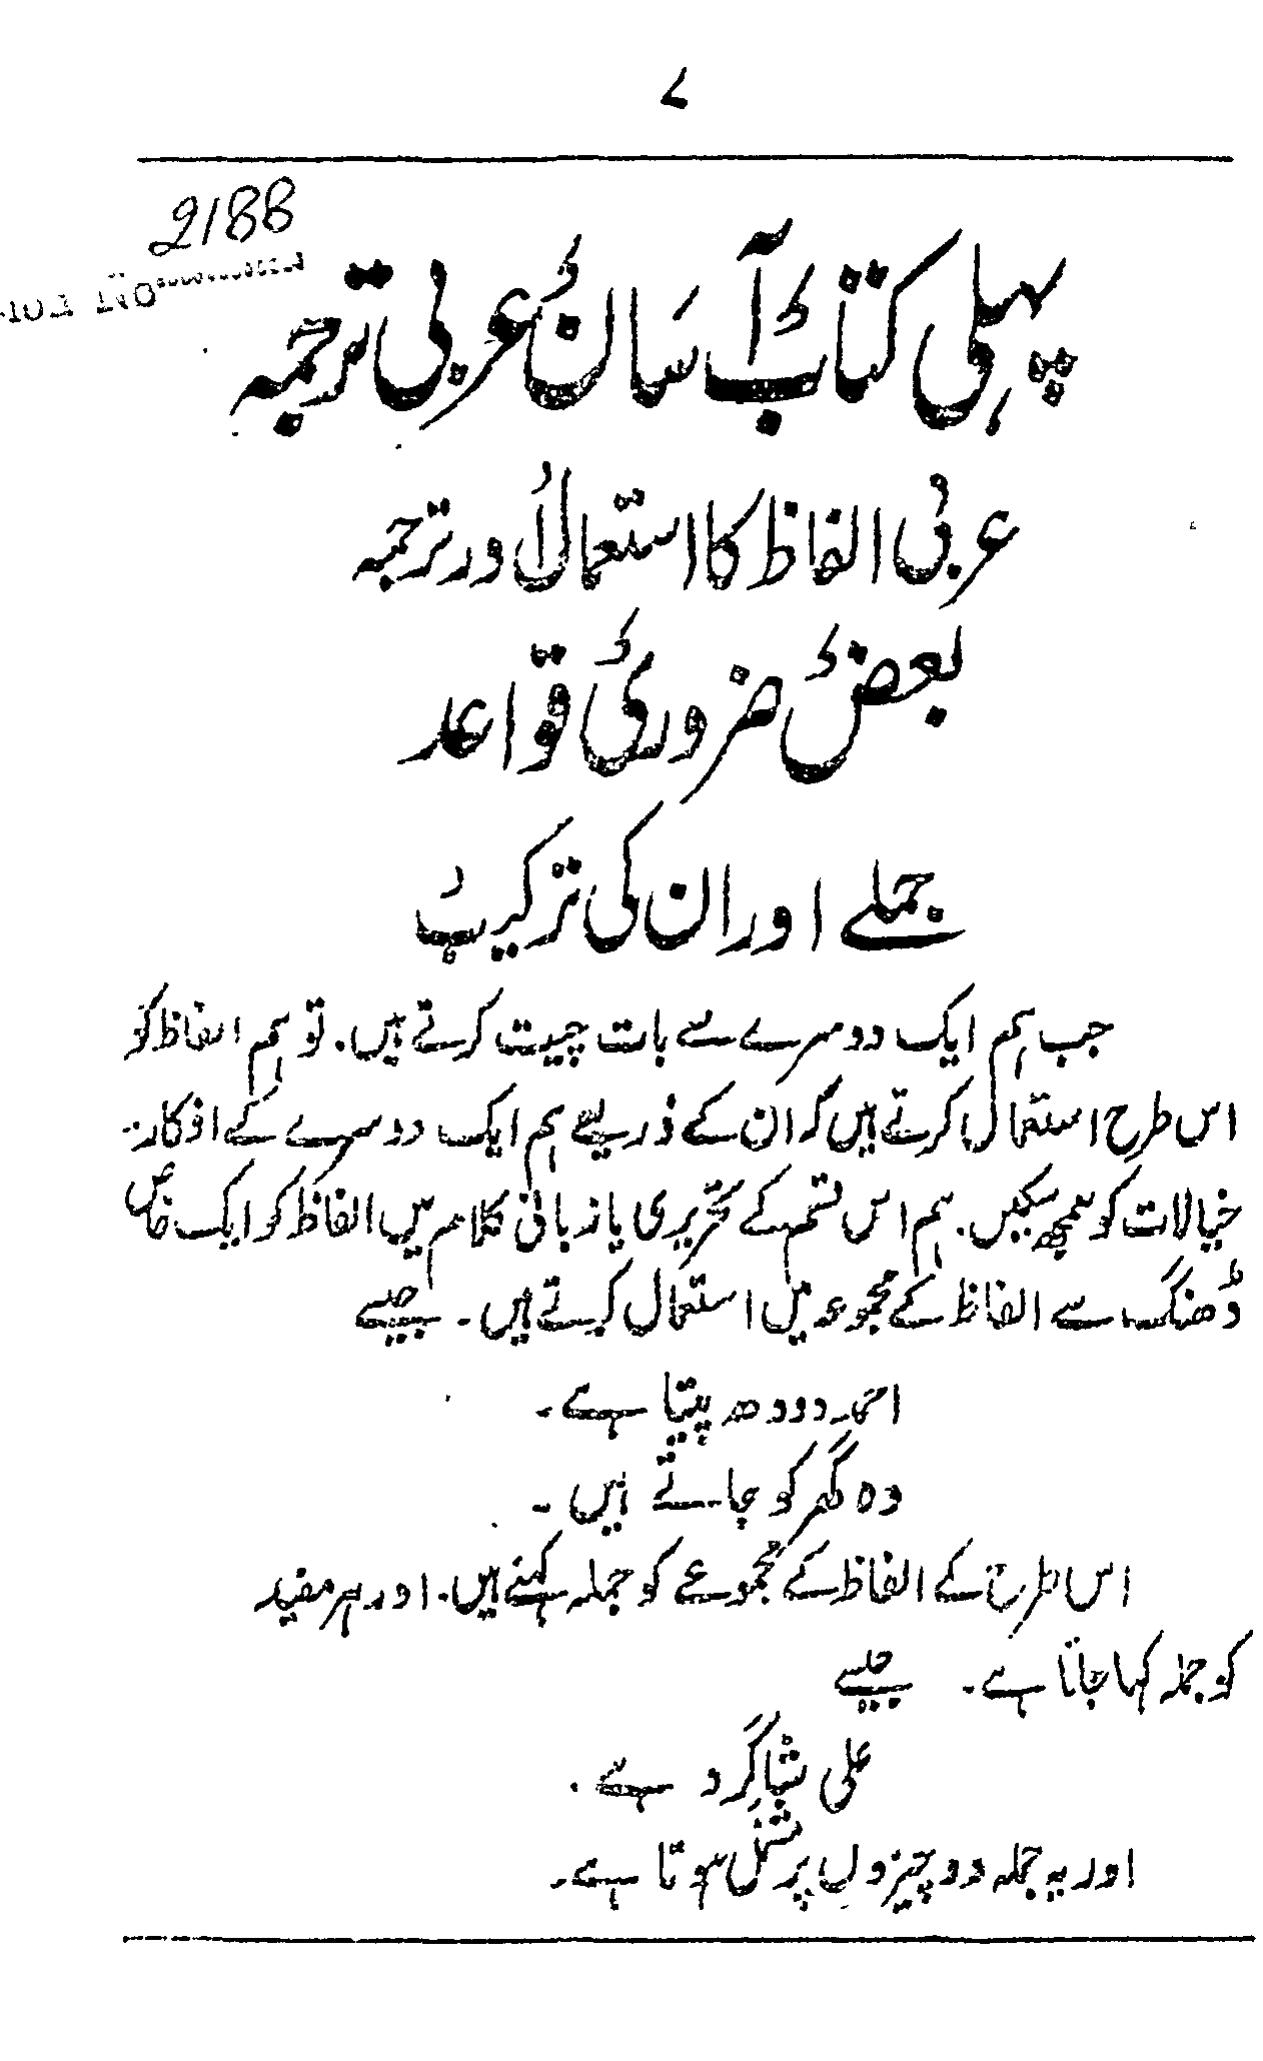 ۷
2188
پہلی کتاب آسان عربی ترجمہ
عربی الفاظ کا استعمال اور ترجمہ
بعض ضروری قواعد
جملے اور ان کی ترکیب
جب ہم ایک دوسرے سے بات چیت کرتے ہیں۔ تو ہم الفاظ کو
اس طرح استعمال کرتے ہیں کہ ان کے ذریعے ہم ایک دوسرے کے افکار۔
خیالات کو سمجھ سکیں۔ ہم اس قسم کے تحریری یا زبانی کلام میں الفاظ کو ایک خاص
ڈھنگ سے الفاظ کے مجموعہ میں استعمال کرتے ہیں۔ جیسے
احمد دودھ پیتا ہے۔
وہ گھر کو جاتے ہیں۔
اس طرح کے الفاظ کے مجموعے کو جملہ کہتے ہیں۔ اور ہر مفید
کو جملہ کہا جاتا ہے۔ جیسے
علی شاگرد ہے۔
اور یہ جملہ دو چیزوں پر مشتمل ہوتا ہے۔